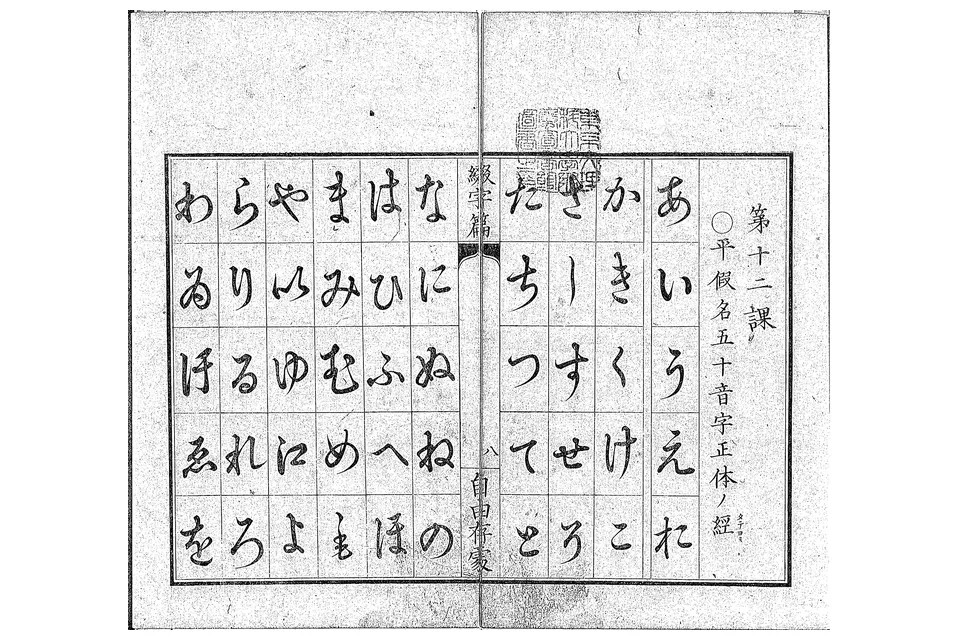 第十二課
○平假名五十音字正体ノ經
あいうえお
かきくけこ
さしすせそ
たちつてと
綴字篇
八
自由存
なにぬねの
はひふへほ
まみむめも
や以ゆ江よ
らりるれろ
わゐ汙ゑを